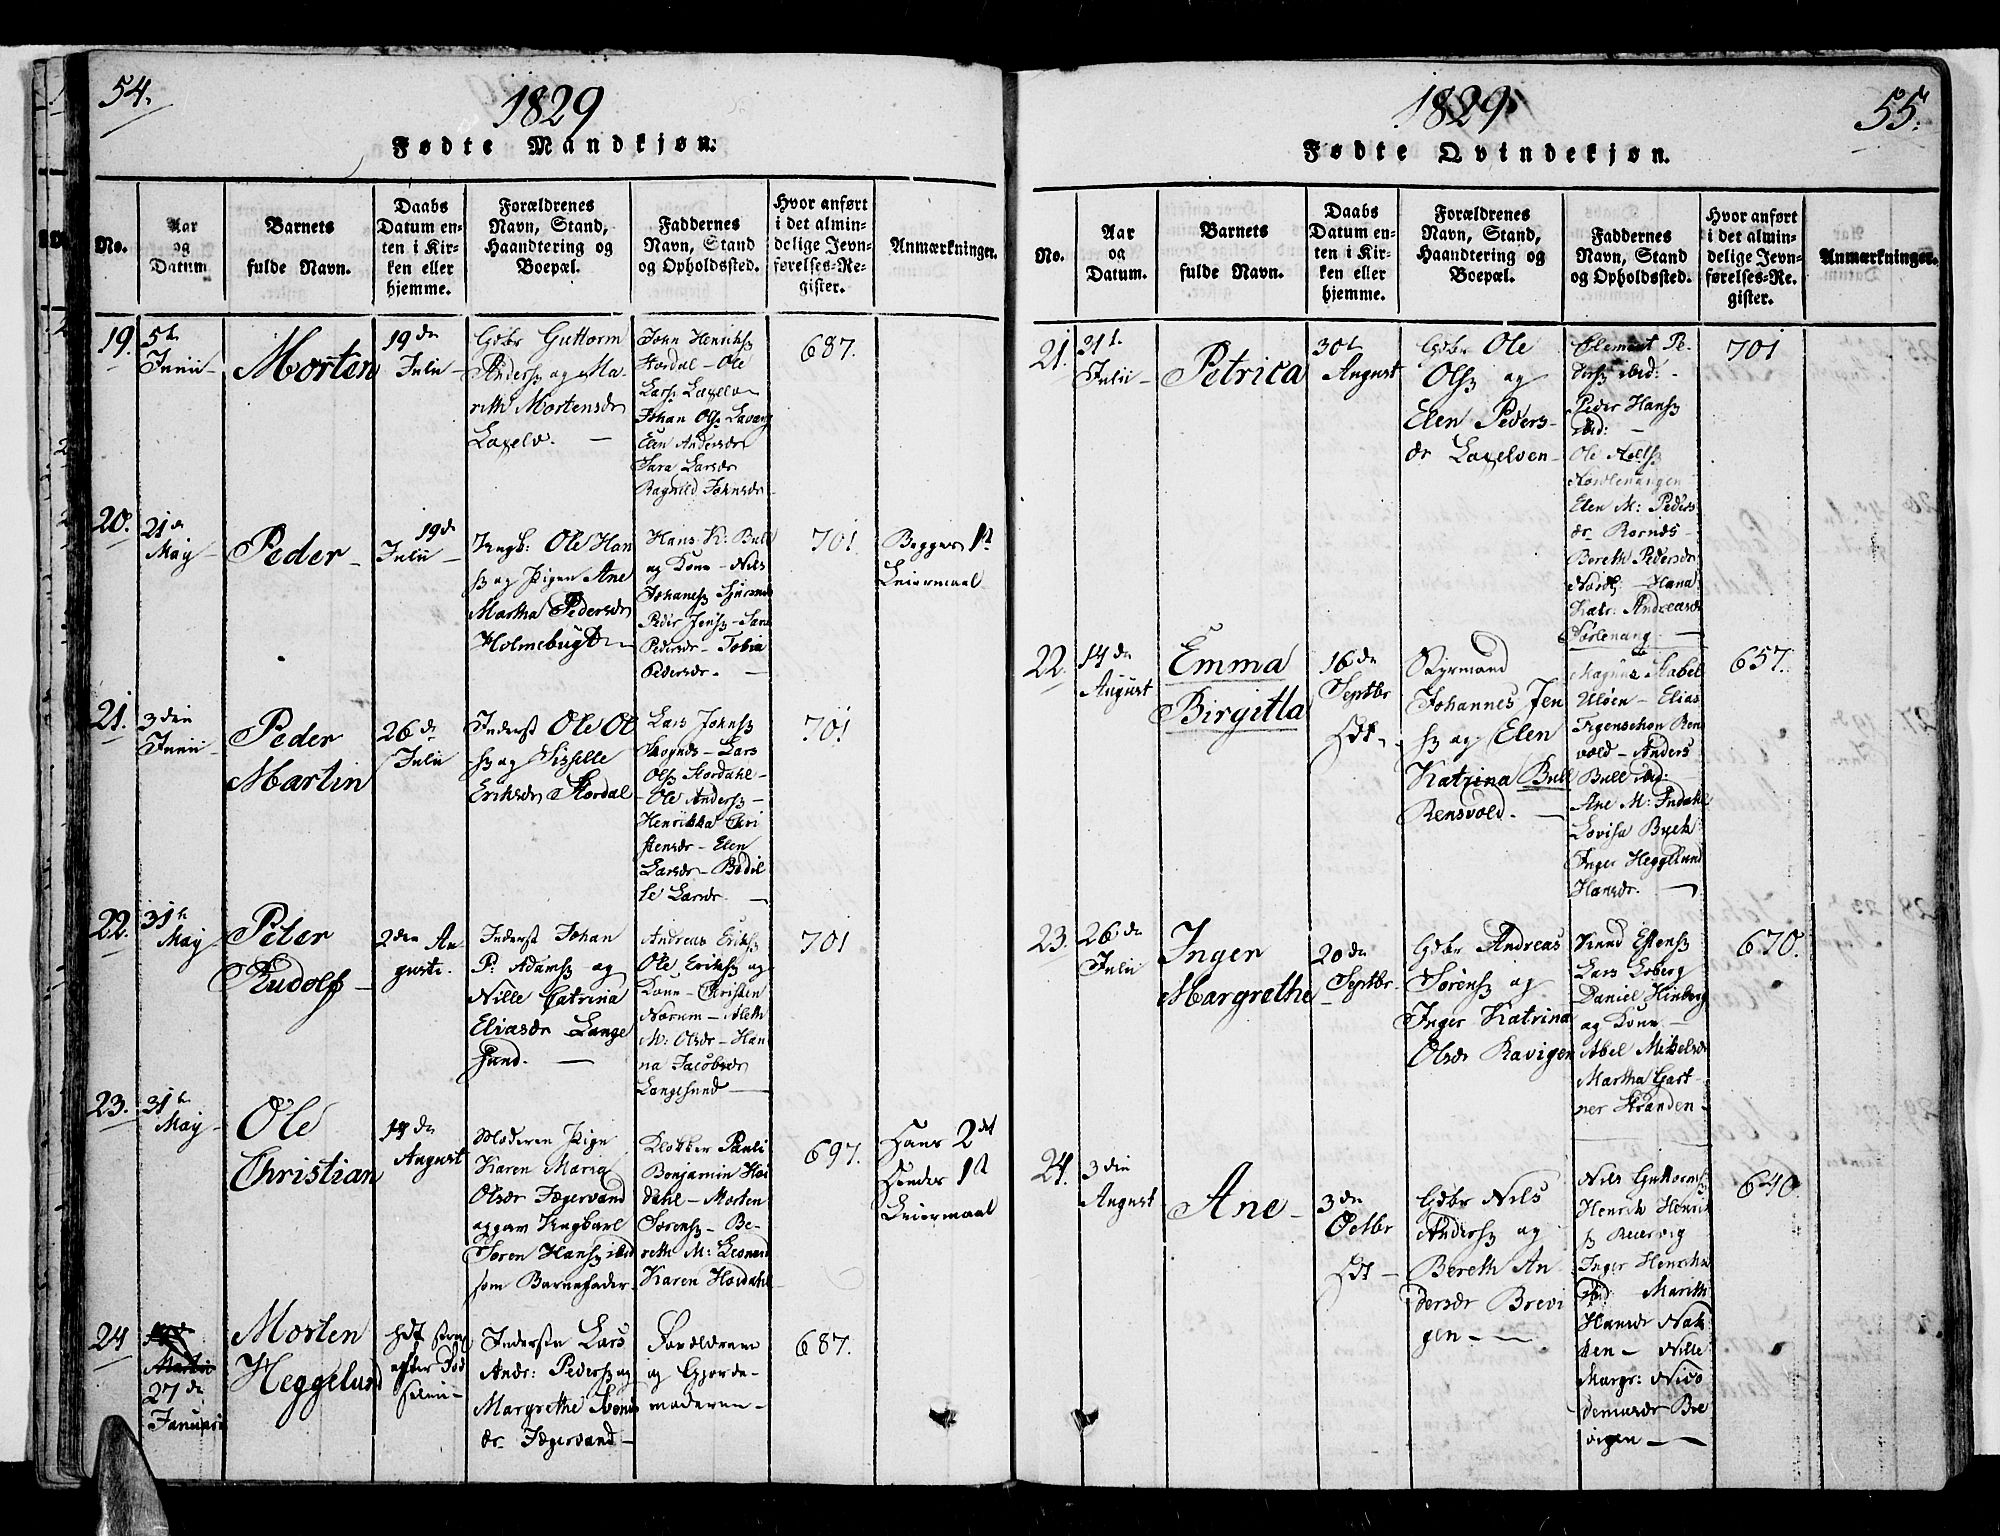 54.
1829
Fødte Mandkjøn.
No.
Aar
og
Datum
Barnets
fulde Navn.
Daabs
Datum en-
ten i Kir-
ken eller
hjemme.
Forældrenes
Navn, Stand,
Haandtering og
Boepæl.
Faddernes
Navn, Stand
og Opholdssted.
Hvor anført
i det almin-
delige Jevn-
førelses-Re-
gister.
Anmærkninger.
19.
5t
Junii
Morten
19de
Julii
Gdbr Guttorm
Anders: og Ma-
rith Mortensdr
Laxelv.
John Henriks:
Stordal - Ole
Lars: Laxelv
Johan Ols:
Elen Andersdr
Sara Larsdr
Ragnild Johnsdr
687.
20.
21de
May
Peder
19de
Julii
Ungk: Ole Han
s: og Pigen Ane
Martha Pedersdr
Holmebugt
Hans K: Bull
og Kone - Nils
Johans:
Peder Jens: - Sara
Pedersdr - Tobia
Pedersdr.
701.
Begges 1st
Leiermaal
21.
3die
Junii
Peder
Martin
26de
Julii
Inderst Ole Ol
s: og Sisselle
Eriksdr Stordal
Lars Johns:
Skognæs - Lars
Ols: Stordahl -
Ole Anders: -
Henrikka Chri
stensdr - Elen
Larsdr - Bodil
le Larsdr.
701
22.
31te
May
Peter
Rudolf
2den Au
gusti.
Inderst Johan
P: Adams: og
Nille Catrina
Eliasdr Lange
sund.
Andreas Eriks:
Ole Eriks: og
Kone - Christen
Norum - Aleth
M: Olsdr - Han
na Jacobsdr
Langesund
701
23.
31te
May
Ole
Christian
14de
August
Moderen Pige
Karen Maria
Olsdr Jægervand
opgav Ungkarl
Søren Hans: ibid
som Barnefader.
Klokker Pauli
Benjamin Hor
dahl - Morten
Sørens: - Be-
reth M: Leonard
Karen Hordahl
697.
Hans 2det
Hendes 1st
Leiermaal
24
27de
Januari
Morten
Heggelund
hdt strax
efter Fød
selen
Inderste Lars
Andr: Peders: og
Margrethe Svens
dr. Jægervand
Forældrene
og Gjorde-
moderen
687.
1829
55.
Fødte Qvindekjøn.
No.
Aar
og
Datum.
Barnets
fulde Navn.
Daabs
Datum en-
ten i Kir-
ken eller
hjemme.
Forældrenes
Navn, Stand,
Haandtering og
Boepæl.
Faddernes
Navn, Stand
og Opholdssted.
Hvor anført
i det almin-
delige Jevn-
førelses-Re-
gister.
Anmærkninger.
21.
31t
Julii
Petrica
30t
August
Gdbr Ole
Ols: og
Elen Peders-
dr Laxelven
Clement Pe-
ders: ibid:
Peder Hans:
ibid:
Ole Nels:
Elen M: Peders
dr Rornæs
Bereth Pedersdr
Hana
Katr: Andreasdr
Sørlenang.
701
22.
14de
August
Emma
Birgitta
16de
Septbr
Hdt
Styrmand
Johannes Jen
s: og Elen
Katrina Bull
Rensvold.
Magnus Stabel
Uløen - Elias
Figenschou Ren
vold - Anders
Bull ibid:
Ane M: Indahl
Lovisa Byck
Inger Heggelund
Hansdr.
657.
23.
26de
Julii
Inger
Margrethe
20de
Septbr
Gdbr Andreas
Sørens: og
Inger Katrina
Olsdr Ravigen
Knud Estens:
Lars Loberg
Daniel Hinberg
og Kone
Abel Mikelsdr
Martha Gart
ner Stranden
670.
24.
3die
August
Ane
3de
Octbr
Hdt
Gdbr Nils
Anders: og
Bereth An
dersdr Brevi
gen
Nils Guttorms:
Henrik Henrik
s:
Inger Henriksdr
ibid Marith
Hansdr Nak
ken - Nille
Margr: Nico
demusdr Bre
vigen
640.